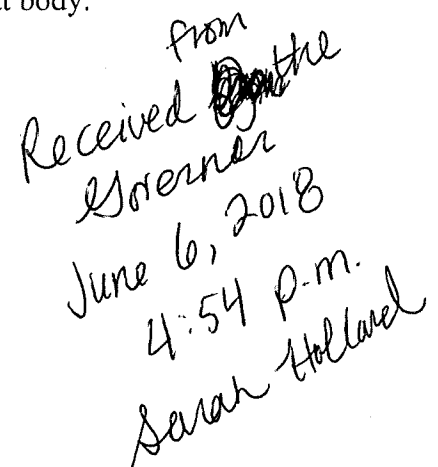 body.
from
Received the
Governor
June 6, 2018
4:54 p.m.
Sarah Holland